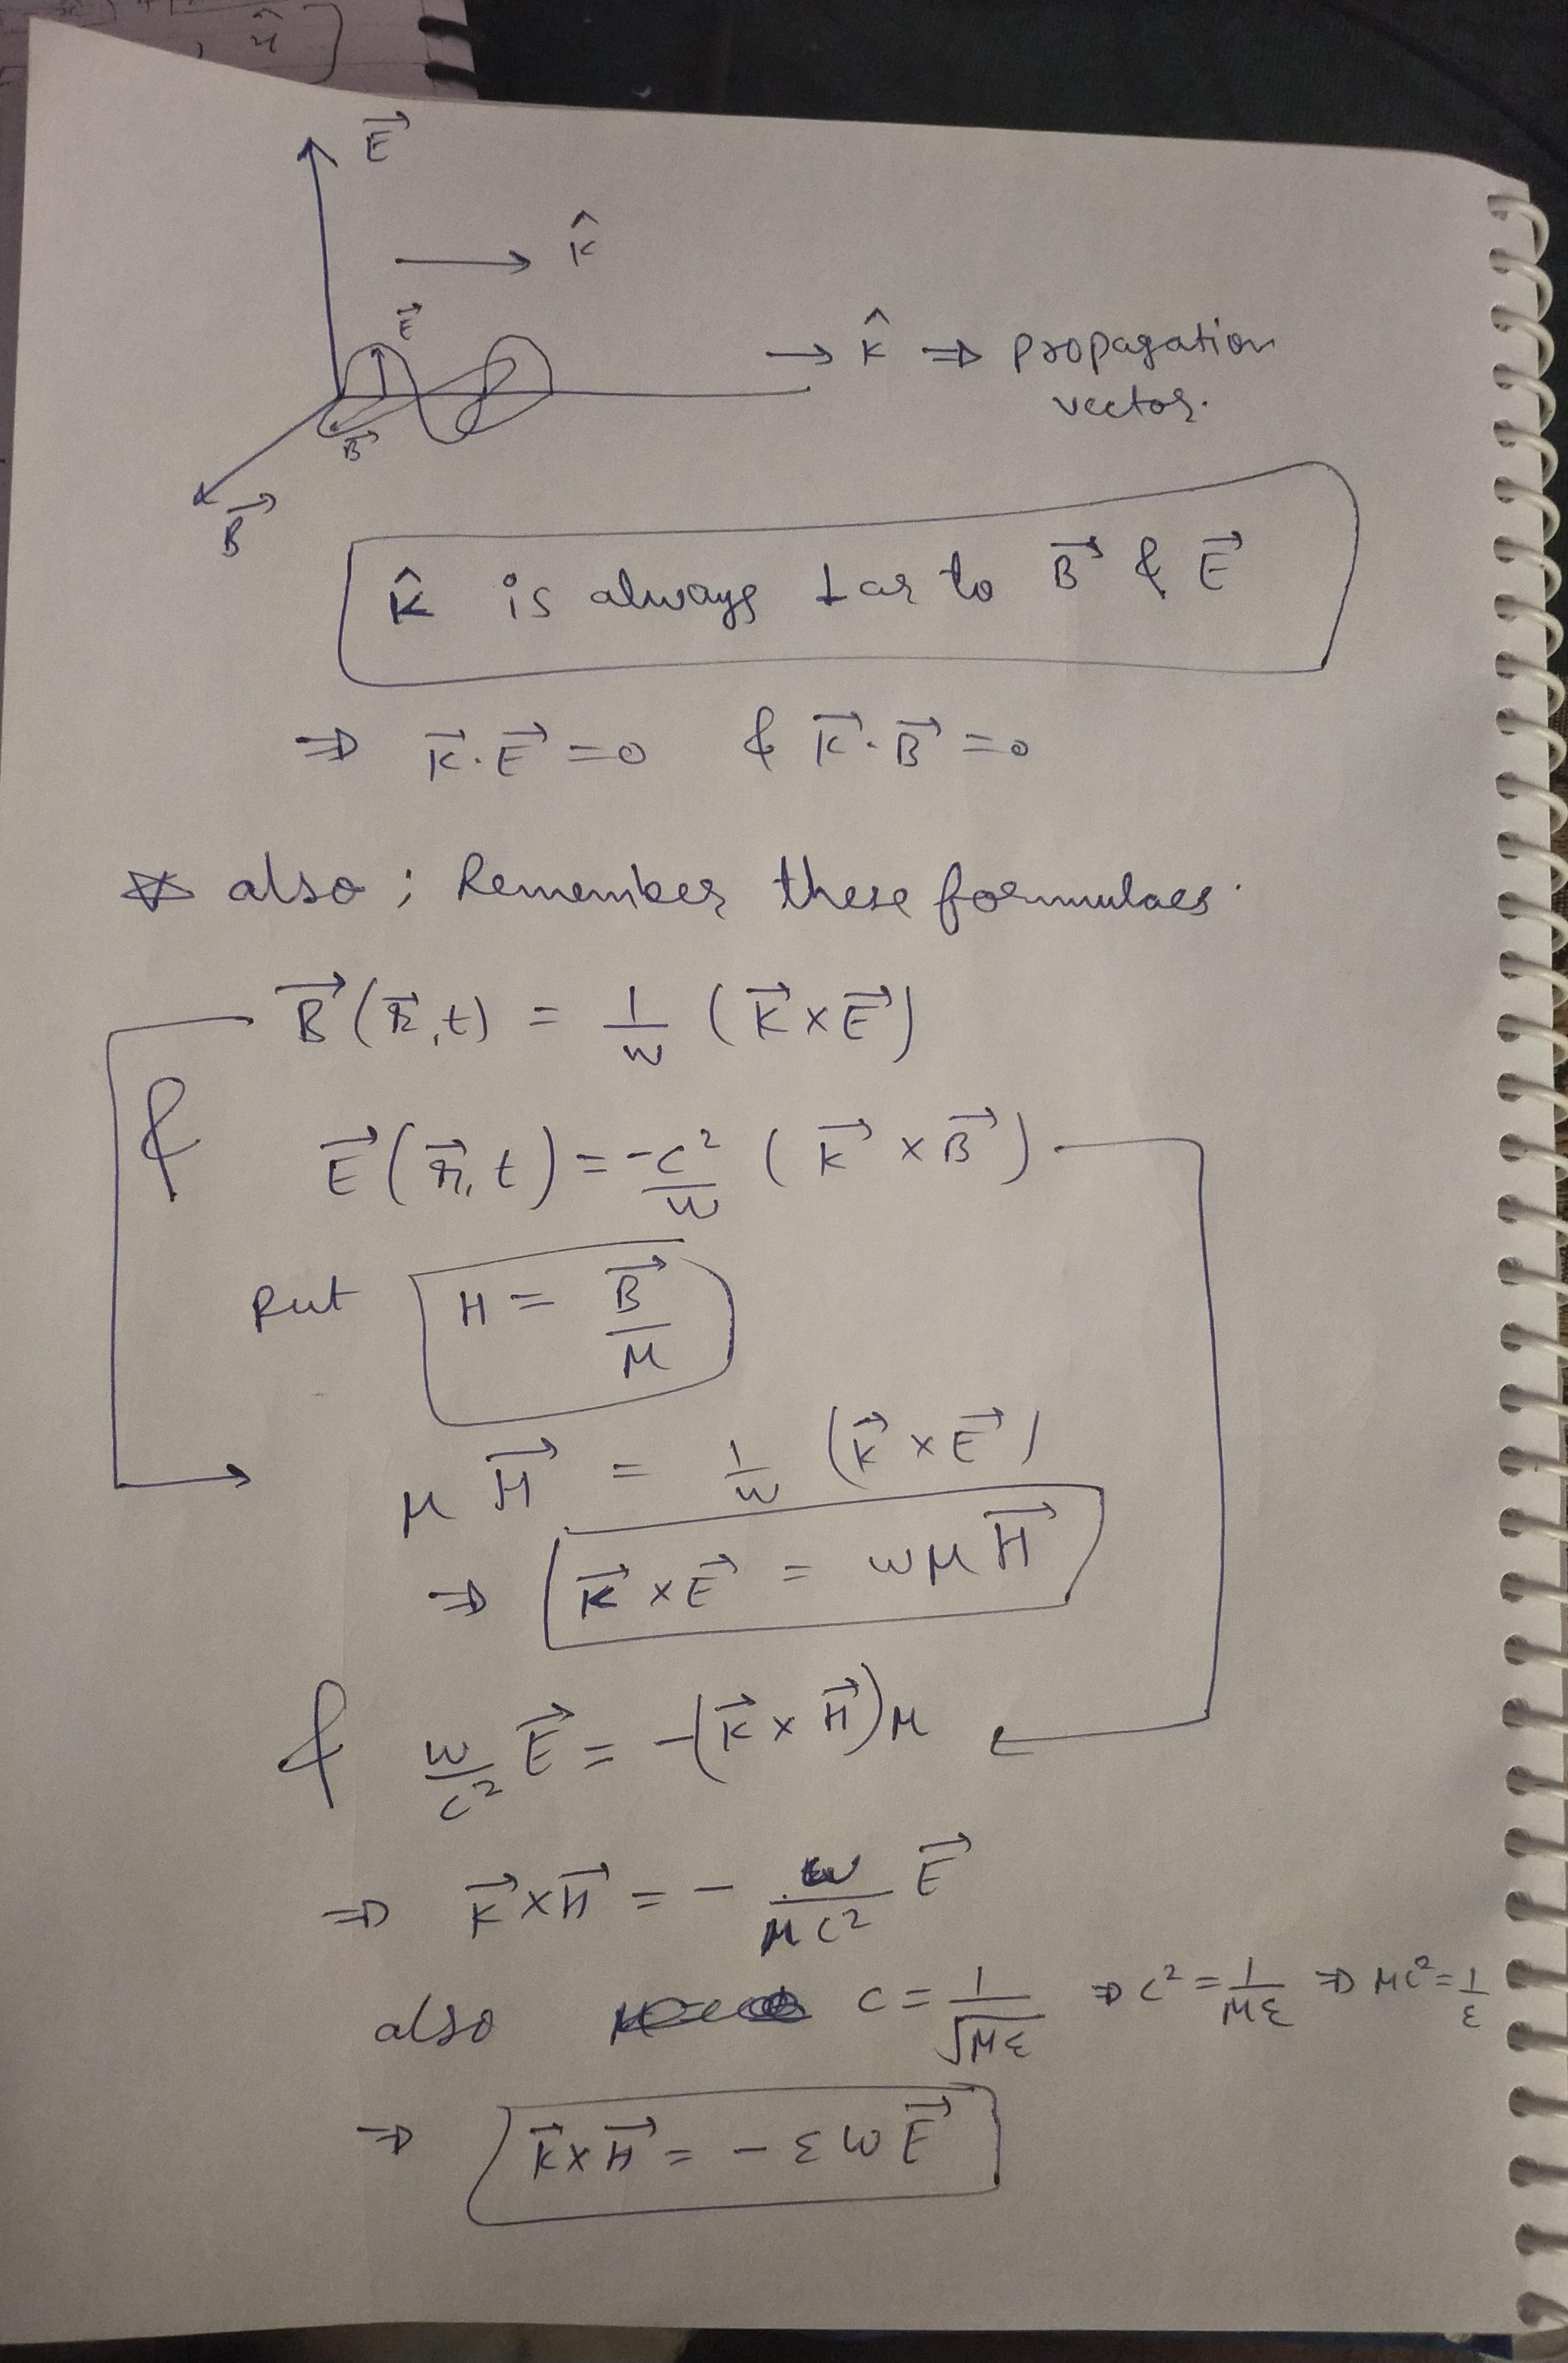 , ŷ
E⃗
K̂
E⃗
→ K̂ ⇒ propagation
vector.
B⃗
B⃗
K̂ is always ⊥ar to B⃗ & E⃗
⇒ K⃗.E⃗ = 0 & K⃗.B⃗ = 0
☆ also ; Remember these formulaes.
B⃗(r⃗,t) = 1/w (K⃗×E⃗)
& E⃗(r⃗,t) = -c²/w (K⃗×B⃗)
Put H = B⃗/μ
μH⃗ = 1/w (K⃗×E⃗)
⇒ K⃗×E⃗ = wμH⃗
& w/c² E⃗ = -(K⃗×H⃗)μ
⇒ K⃗×H⃗ = - w/μc² E⃗
also c = 1/√με ⇒ c² = 1/με ⇒ μc² = 1/ε
⇒ K⃗×H⃗ = - εwE⃗